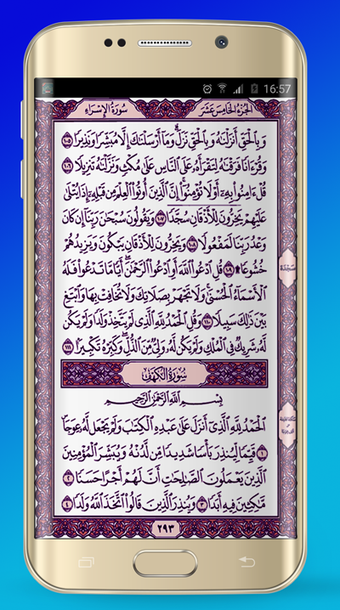 16:57
الجزء الخامس عشر
سورة الإسراء
وَبِالْحَقِّ أَنزَلْنَاهُ وَبِالْحَقِّ نَزَلَ ۗ وَمَا أَرْسَلْنَاكَ إِلَّا مُبَشِّرًا وَنَذِيرًا ١٠٥
وَقُرْآنًا فَرَقْنَاهُ لِتَقْرَأَهُ عَلَى النَّاسِ عَلَىٰ مُكْثٍ وَنَزَّلْنَاهُ تَنزِيلًا ١٠٦
قُلْ آمِنُوا بِهِ أَوْ لَا تُؤْمِنُوا ۚ إِنَّ الَّذِينَ أُوتُوا الْعِلْمَ مِن قَبْلِهِ إِذَا يُتْلَىٰ
عَلَيْهِمْ يَخِرُّونَ لِلْأَذْقَانِ سُجَّدًا ١٠٧ وَيَقُولُونَ سُبْحَانَ رَبِّنَا إِن كَانَ
وَعْدُ رَبِّنَا لَمَفْعُولًا ١٠٨ وَيَخِرُّونَ لِلْأَذْقَانِ يَبْكُونَ وَيَزِيدُهُمْ
خُشُوعًا ۩ ١٠٩ قُلِ ادْعُوا اللَّهَ أَوِ ادْعُوا الرَّحْمَٰنَ ۖ أَيًّا مَّا تَدْعُوا فَلَهُ
الْأَسْمَاءُ الْحُسْنَىٰ ۚ وَلَا تَجْهَرْ بِصَلَاتِكَ وَلَا تُخَافِتْ بِهَا وَابْتَغِ
بَيْنَ ذَٰلِكَ سَبِيلًا ١١٠ وَقُلِ الْحَمْدُ لِلَّهِ الَّذِي لَمْ يَتَّخِذْ وَلَدًا وَلَمْ يَكُن
لَّهُ شَرِيكٌ فِي الْمُلْكِ وَلَمْ يَكُن لَّهُ وَلِيٌّ مِّنَ الذُّلِّ ۖ وَكَبِّرْهُ تَكْبِيرًا ١١١
سورة الكهف
بِسْمِ اللَّهِ الرَّحْمَٰنِ الرَّحِيمِ
الْحَمْدُ لِلَّهِ الَّذِي أَنزَلَ عَلَىٰ عَبْدِهِ الْكِتَابَ وَلَمْ يَجْعَل لَّهُ عِوَجًا ١
قَيِّمًا لِّيُنذِرَ بَأْسًا شَدِيدًا مِّن لَّدُنْهُ وَيُبَشِّرَ الْمُؤْمِنِينَ
الَّذِينَ يَعْمَلُونَ الصَّالِحَاتِ أَنَّ لَهُمْ أَجْرًا حَسَنًا ٢
مَّاكِثِينَ فِيهِ أَبَدًا ٣ وَيُنذِرَ الَّذِينَ قَالُوا اتَّخَذَ اللَّهُ وَلَدًا ٤
٢٩٣